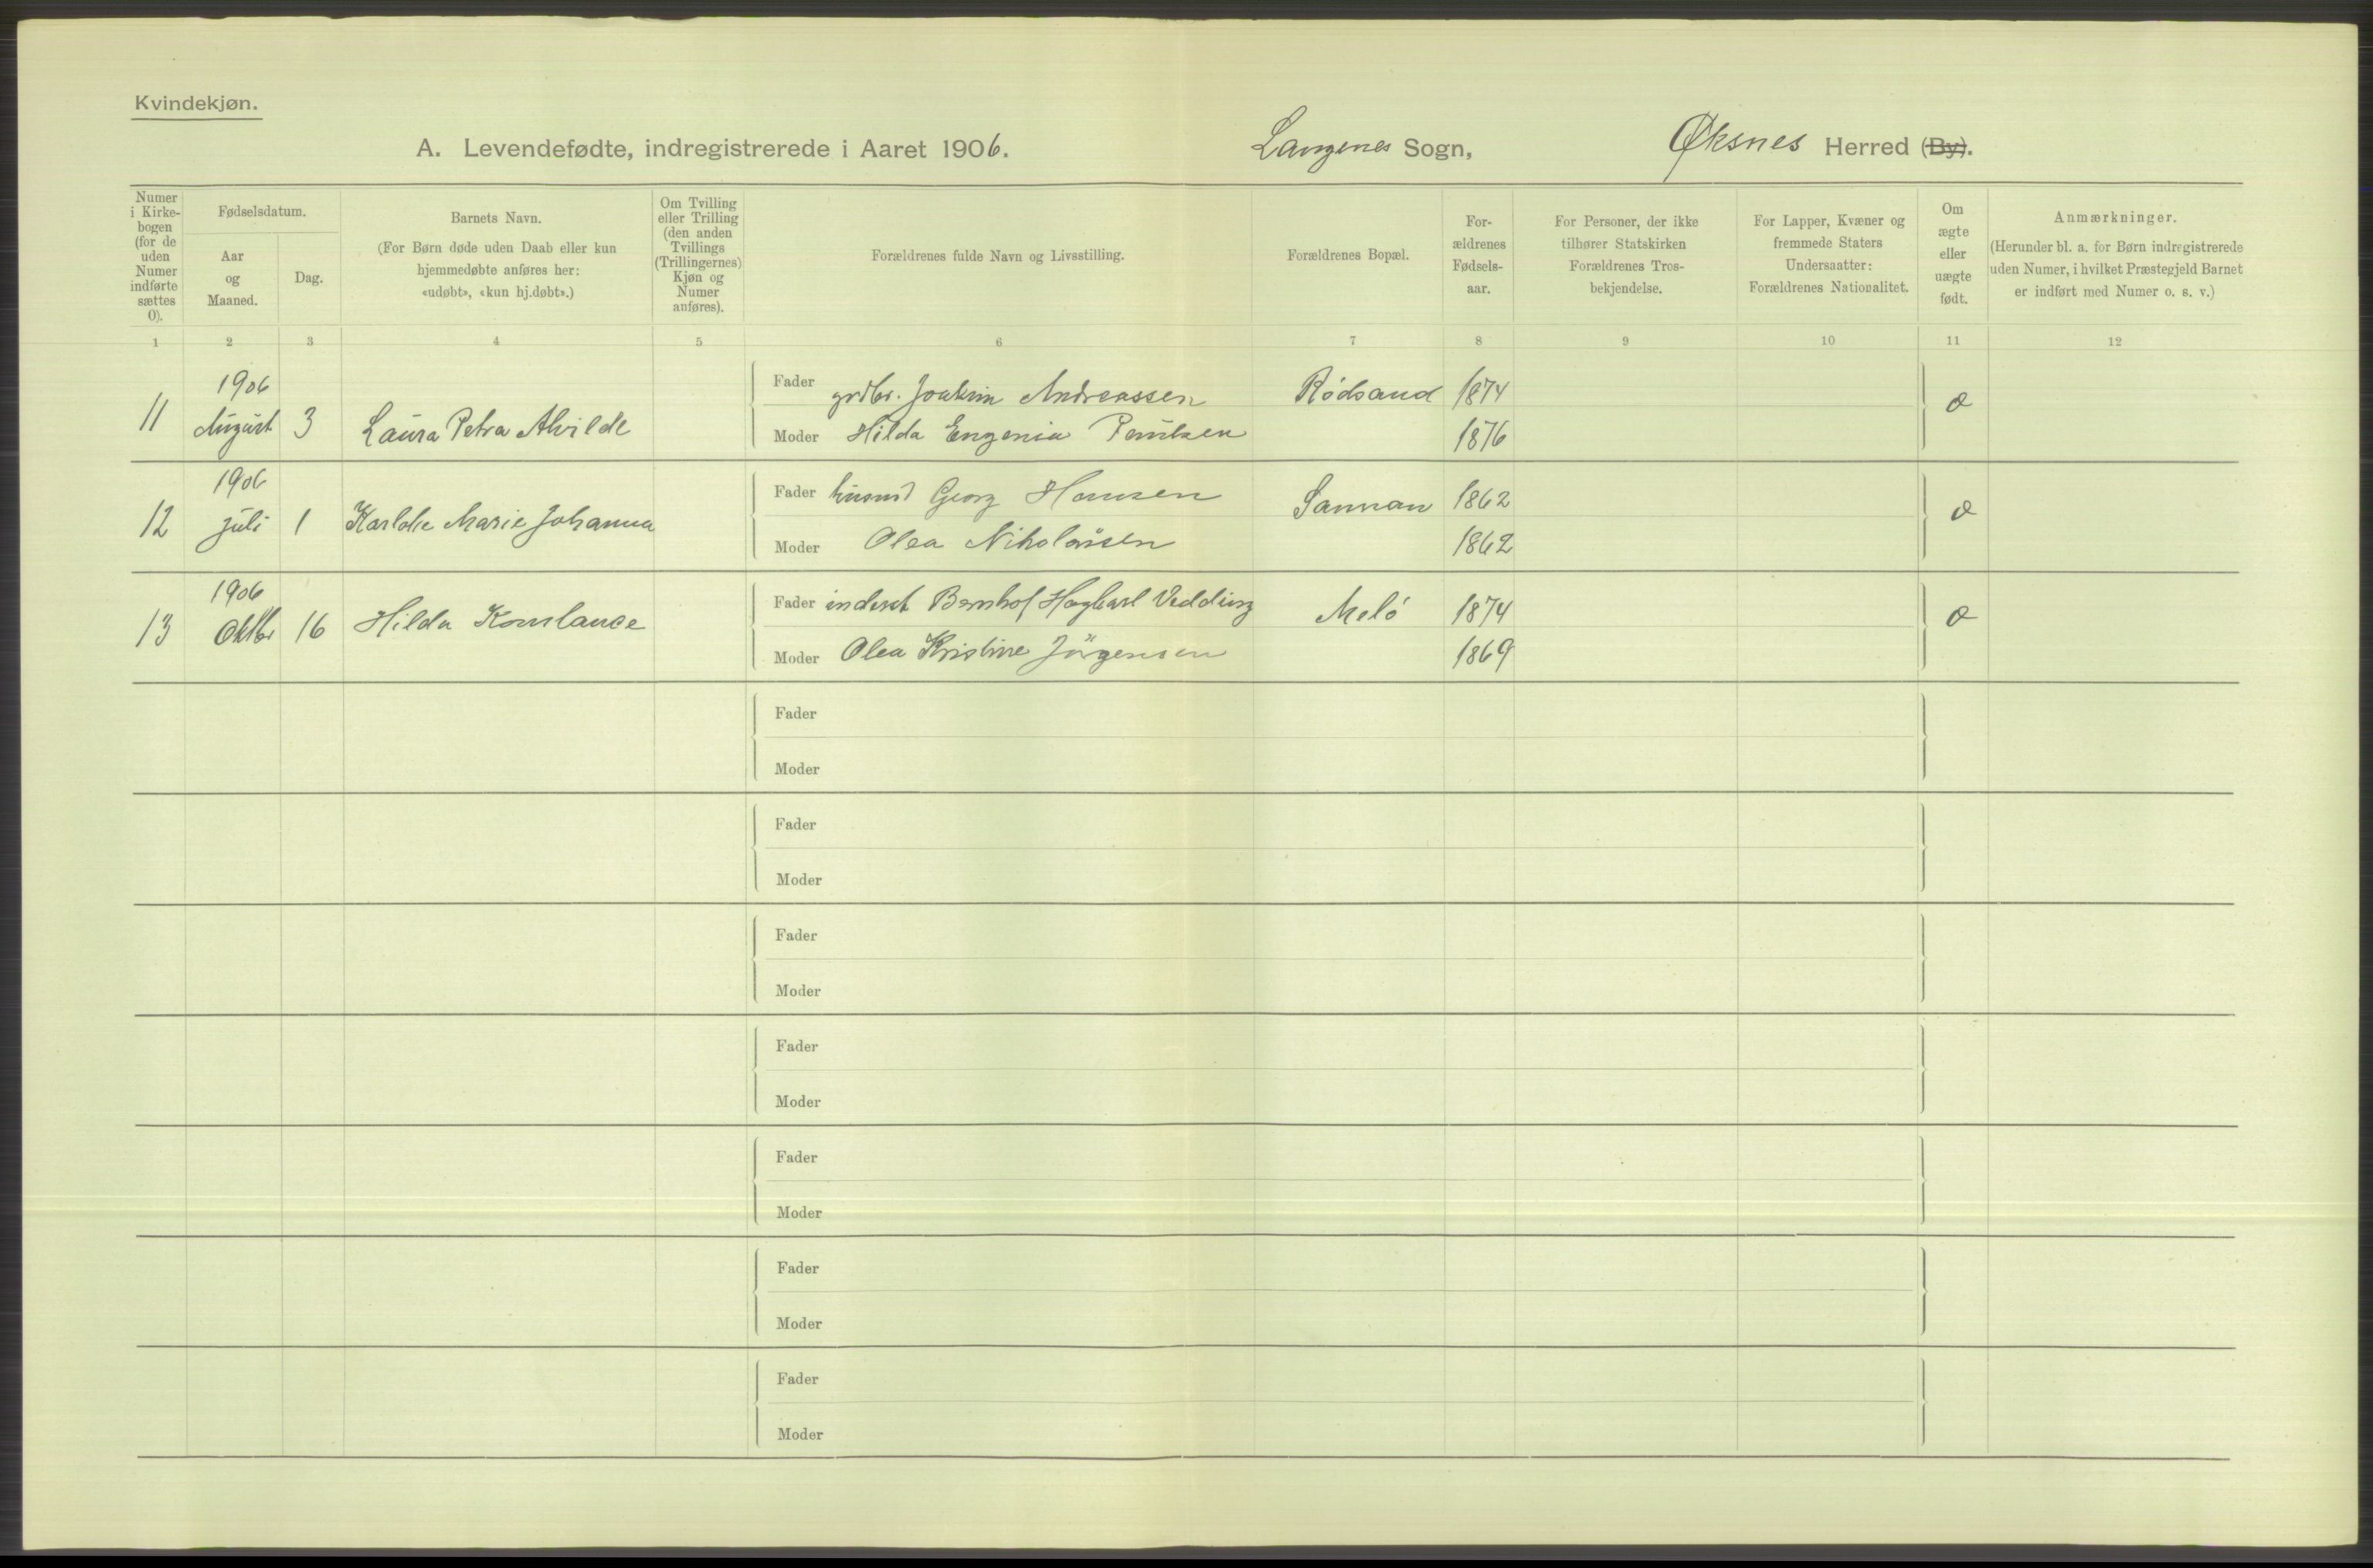 Kvindekjøn.
A. Levendefødte, indregistrerede i Aaret 1906. Langenes Sogn, Øksnes Herred (By).
Numer i Kirke-bogen (for de uden Numer indførte sættes 0).
Fødselsdatum.
Aar og Maaned.
Dag.
Barnets Navn.
(For Børn døde uden Daab eller kun
hjemmedøbte anføres her:
«udøbt», «kun hj.døbt».)
Om Tvilling
eller Trilling
(den anden
Tvillings
(Trillingernes)
Kjøn og
Numer
anføres).
Forældrenes fulde Navn og Livsstilling.
Forældrenes Bopæl.
For-
ældrenes
Fødsels-
aar.
For Personer, der ikke
tilhører Statskirken
Forældrenes Tros-
bekjendelse.
For Lapper, Kvæner og
fremmede Staters
Undersaatter:
Forældrenes Nationalitet.
Om
ægte
eller
uægte
født.
Anmærkninger.
(Herunder bl. a. for Børn indregistrerede
uden Numer, i hvilket Præstegjeld Barnet
er indført med Numer o. s. v.)
1 2 3 4 5 6 7 8 9 10 11 12
11 1906 August 3 Laura Petra Alvilde
Fader grdbr. Joakim Andreassen Rødsand 1874
Moder Hilda Eugenia Paulsen 1876
12 1906 Juli 1 Marie Johanna
Fader Georg Hansen Sannan 1862
Moder Olea Nikolaisen 1862
13 1906 Oktbr 16 Hilda Konstance
Fader inderst Hagbart Vedding Melö 1874
Moder Olea Kristine Jörgensen 1869
Fader
Moder
Fader
Moder
Fader
Moder
Fader
Moder
Fader
Moder
Fader
Moder
Fader
Moder